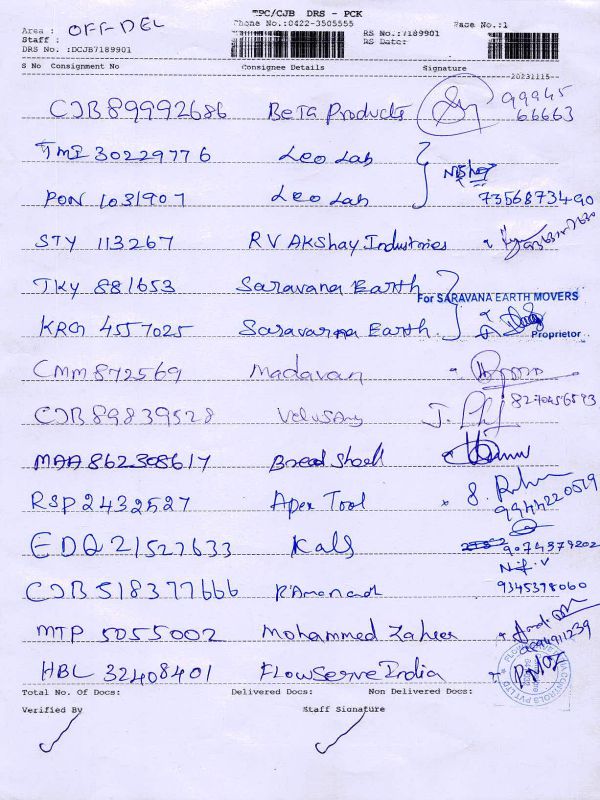 TPC/CJB DRS - PCK
Area : OFF-DEL Phone No.:0422-3505555 Page No.:1
Staff : RS No.:7189901
DRS No. :DCJB7189901 RS Date:
S No Consignment No Consignee Details Signature
20231115
CJB 89992686 Beta Products 99945
66663
TMI 30229776 Leo Lab
PON 1031907 Leo Lab 7356873490
STY 113267 RV Akshay Industries
TKY 881653 Saravana Earth
For SARAVANA EARTH MOVERS
KRG 4557025 Saravarna Earth
Proprietor
CMM 872569 Madavan
CJB 89839528 Velusamy 8270456593
MAA 862308617 Bread Shell
RSP 2432527 Apex Tool 9944220519
EDQ 21527633 Kals 9074379202
CJB 518377666 9345378060
MTP 5055002 Mohammed Zaheer
HBL 32408401 Flowserve India
Total No. Of Docs: Delivered Docs: Non Delivered Docs:
Verified By Staff Signature